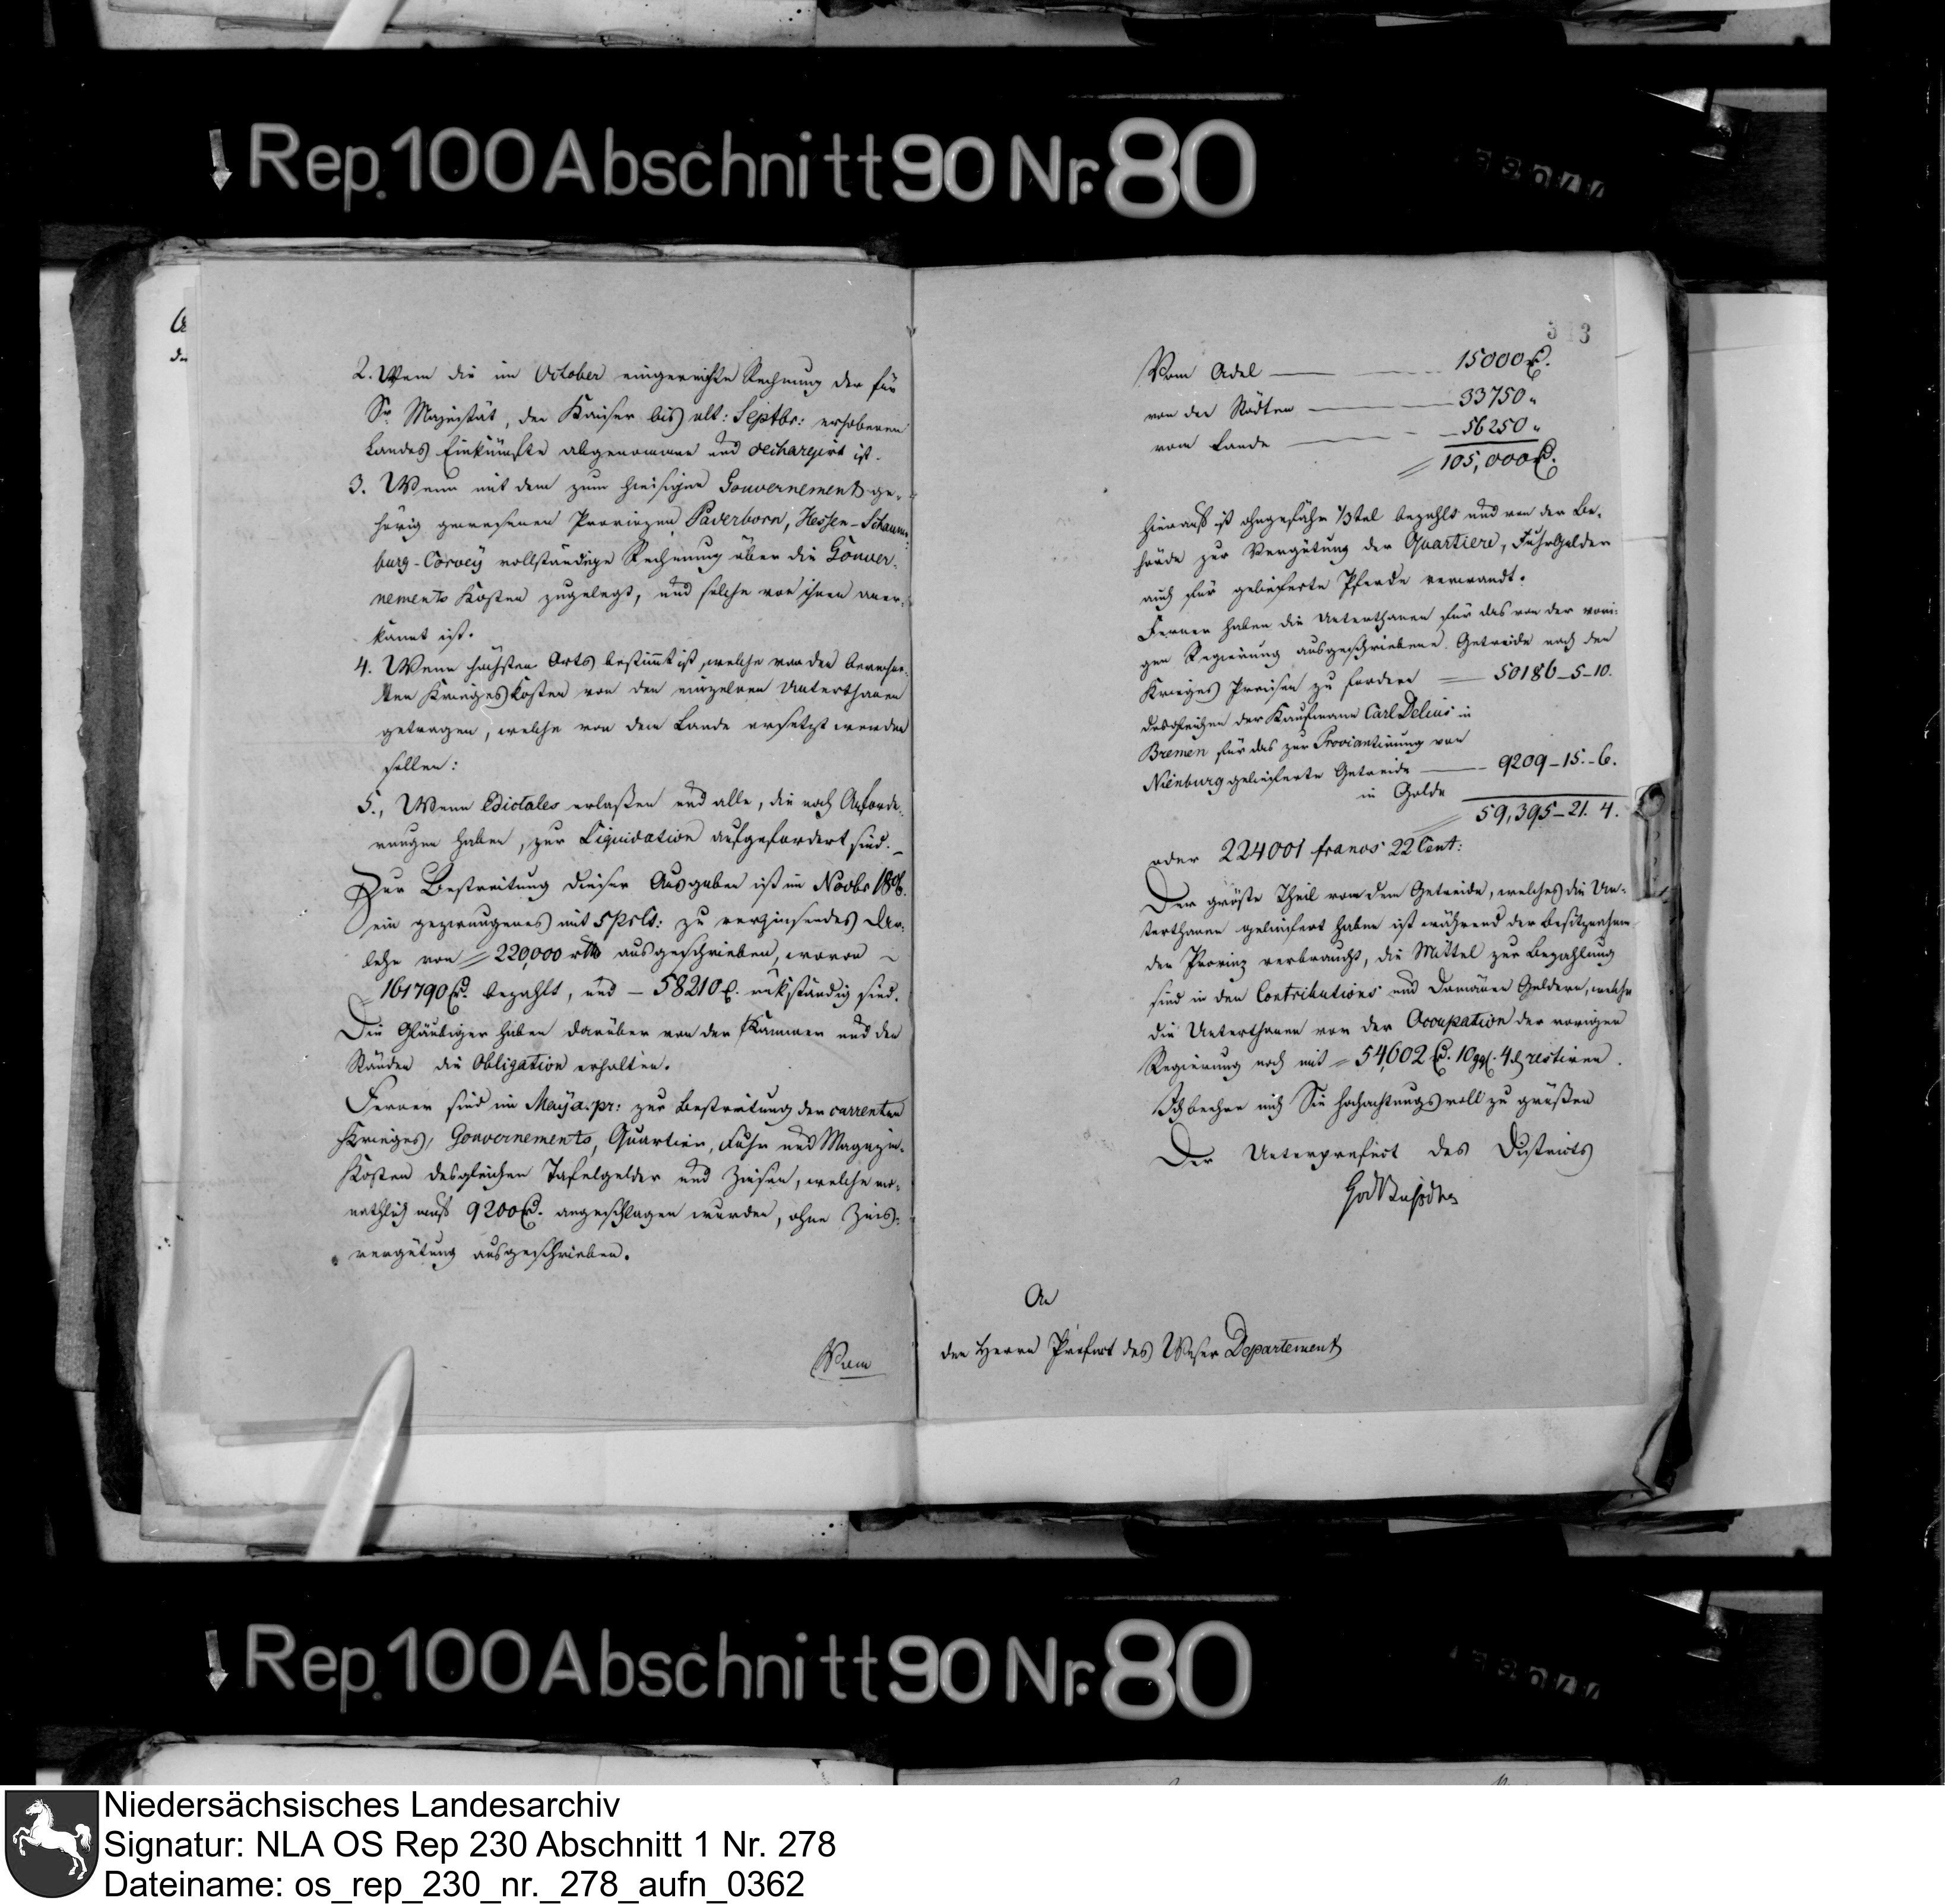 Rep. 100 Abschnitt 90 Nr. 80
2. Wenn die im October eingereichte Rechnung der für
Sr. Majestät, den Kaiser bis ult: Septbr: erhobenen
Landes Einkünfte abgenommen und dechargirt ist.
3. Wenn mit dem zum hiesigen Gouvernement ge-
hörig gewesenen Provinzen Paderborn, Hessen-Schaum-
burg-Corvey vollständige Rechnung über die Gouver-
nements Kosten zugelegt, und solche von ihnen aner-
kannt ist.
4. Wenn höchsten Orts bestimmt ist, welche von den
Krieges Kosten von den einzelnen Unterthanen
getragen, welche von dem Lande ersetzt werden
sollen:
5., Wenn Edictales erlaßen und alle, die noch Anforde-
rungen haben, zur Liquidation aufgefordert sind. -
Zur Bestreitung dieser Ausgaben ist im Novbr 1806.
ein gezwungenes mit 5 prCt: zu verzinsendes Dar-
lehn von = 220,000 rth ausgeschrieben, wovon
= 161790 r. bezahlt, und - 58210 r. rükständig sind.
Die Gläubiger haben darüber von der Kammer und den
Ständen die Obligation erhalten.
Ferner sind im May a. pr: zur Bestreitung der currenten
Krieges, Gouvernements, Quartier, Fuhr und Magazin-
Kosten desgleichen Tafelgelder und Zinsen, welche mo-
natlich auf 9200 r. angeschlagen wurden, ohne Zins-
vergütung ausgeschrieben.
Vom
313
Vom Adel 15000 r.
von den Städten 33750 "
vom Lande 56250 "
= 105,000 r.
Hierauf ist ohngefähr 1/3tel bezahlt und von der Be-
hörde zur Vergütung der Quartiere, Fuhrgelder
auch für gelieferte Pferde verwandt.
Ferner haben die Unterthanen für das von der vori-
gen Regierung ausgeschriebene Getreide nach den
Krieges Preisen zu fordern = 50186 - 5 - 10.
desgleichen der Kaufmann Carl Delius in
Bremen für das zur Proviantirung von
Nienburg gelieferte Getreide 9209 - 15. - 6.
in Golde
= 59,395 - 21. 4.
oder 224001 francs 22 Cent:
Der gröste Theil von dem Getreide, welches die Un-
terthanen geliefert haben ist während der Besitznahme
der Provinz verbraucht, die Mittel zur Bezahlung
sind in den Contributions und Domänen Geldern, welche
die Unterthanen vor der Occupation der vorigen
Regierung noch mit = 54,602 r. 10 ggl. 4 d restiren.
Ich beehre mich Sie hochachtungsvoll zu grüßen
Der Unterprefect des Districts
An
den Herrn Präfect des Weser Departement
Rep. 100 Abschnitt 90 Nr. 80
Niedersächsisches Landesarchiv
Signatur: NLA OS Rep 230 Abschnitt 1 Nr. 278
Dateiname: os_rep_230_nr._278_aufn_0362